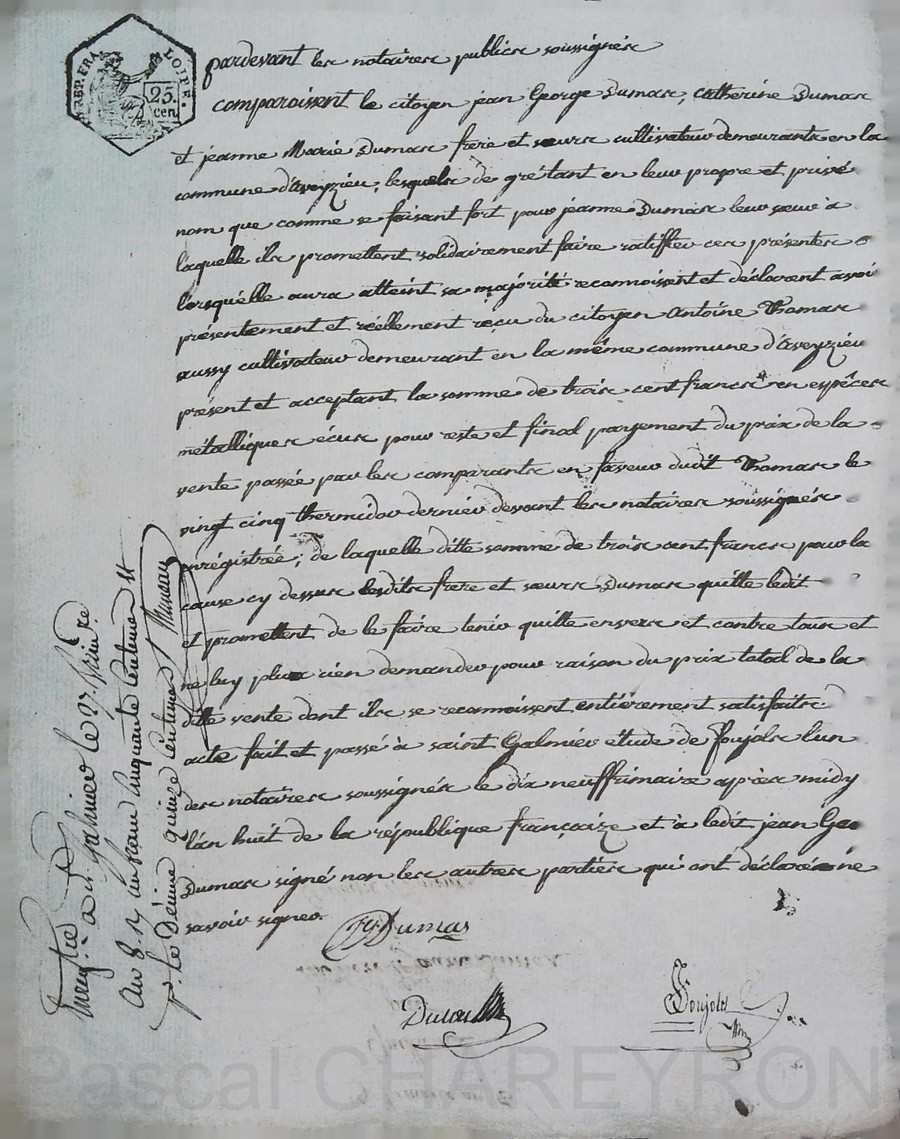 REP. FRA
LOIRE.
25.
cen
pardevant les notaires publics soussignés
comparoissent le citoyen jean George Dumas, catherine Dumas
et jeanne Marie Dumas frere et sœurs cultivateur demeurants en la
commune d'aveyzieu, lesquels de gré tant en leur propre et privé
nom que comme se faisant fort pour jeanne Dumas leur sœur à
laquelle ils promettent solidairement faire ratiffier ces présentes
lorsquélle aura atteint sa majorité reconnoissent et déclarent avoir
présentement et réellement reçu du citoyen Antoine Thomas
aussy cultivateur demeurant en la même commune d'aveyzieu
présent et acceptant la somme de trois cent francs en espéces
métalliques écus pour reste et final payement du prix de la
vente passée par les comparants en faveur dudit Thomas le
vingt cinq thermidor dernier devant les notaires soussignés
enrégistrée; de laquelle ditte somme de trois cent francs pour la
cause cy dessus lesdits frere et sœurs Dumas quitte ledit
et promettent de le faire tenir quitte envers et contre tous et
ne luy plus rien demander pour raison du prix total de la
ditte vente dont ils se reconnoissent entiérement satisfaits
acte fait et passé à saint Galmier etude de Poujols l'un
des notaires soussignés le dix neuf frimaire apres midy
l'an huit de la république françaize et à ledit jean Geo
Dumas signé non les autres parties qui ont déclaré ne
savoir signer
Dumas
Poujols
Enregtré a St Galmier le 27 frimre
an 8. R. un franc cinquante Centimes et
pr. le déxime quinze Centimes
Pascal CHAREYRON